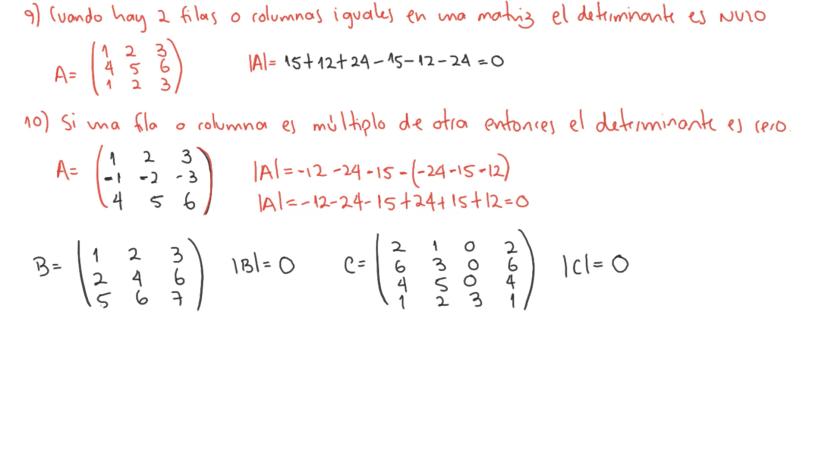 9) Cuando hay 2 filas o columnas iguales en una matriz el determinante es NULO
A= (1 2 3
4 5 6
1 2 3) |A|= 15+12+24-15-12-24=0
10) Si una fila o columna es múltiplo de otra entonces el determinante es cero.
A= (1 2 3
-1 -2 -3
4 5 6) |A|=-12-24-15-(-24-15-12)
|A|=-12-24-15+24+15+12=0
B= (1 2 3
2 4 6
5 6 7) |B|=0
C= (2 1 0 2
6 3 0 6
4 5 0 4
1 2 3 1) |C|=0